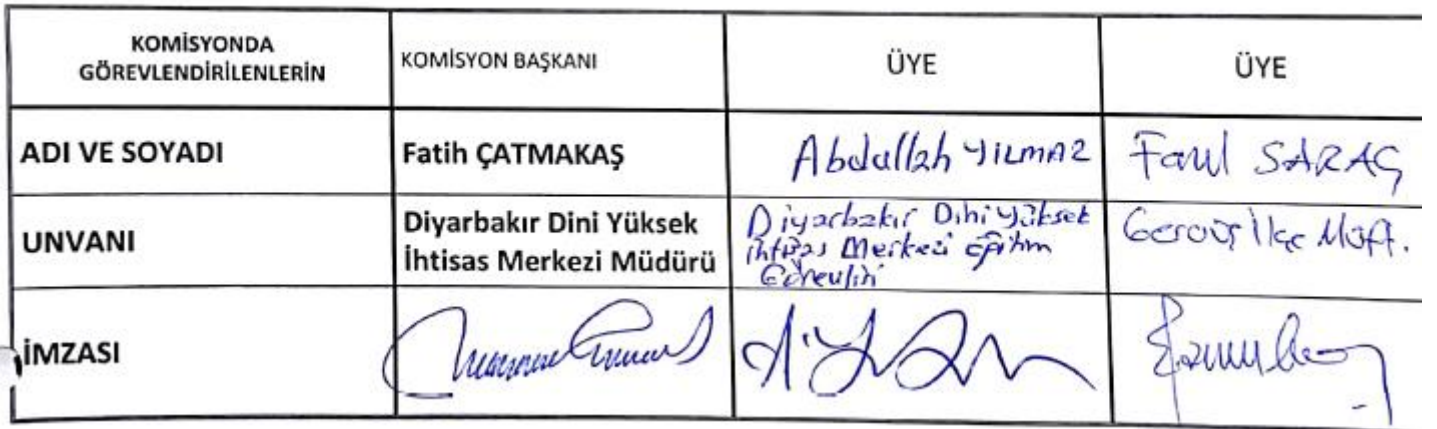 KOMİSYONDA
GÖREVLENDİRİLENLERİN
KOMİSYON BAŞKANI
ÜYE
ÜYE
ADI VE SOYADI
Fatih ÇATMAKAŞ
Abdullah YILMAZ
SARAÇ
UNVANI
Diyarbakır Dini Yüksek
İhtisas Merkezi Müdürü
Diyarbakır Dini Yüksek
İhtisas Merkezi Eğitim
Görevlisi
Gercüş İlçe Müft.
İMZASI